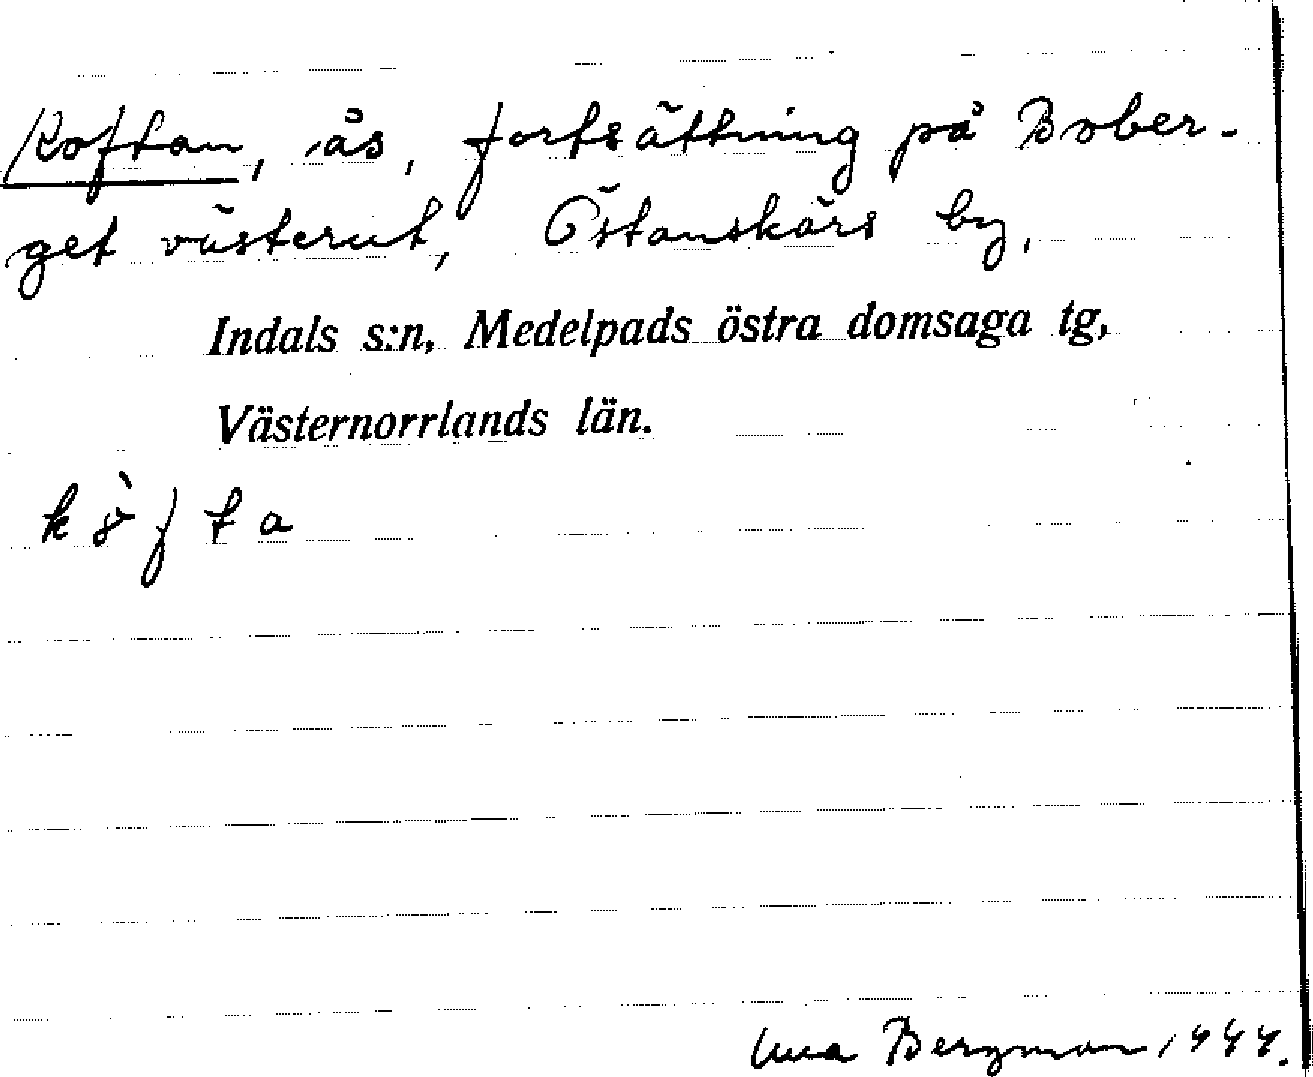 Koftan, ås, fortsättning på Bober-
get västerut, Östanskärs by,
Indals s:n, Medelpads östra domsaga tg,
Västernorrlands län.
Bergman 1944.